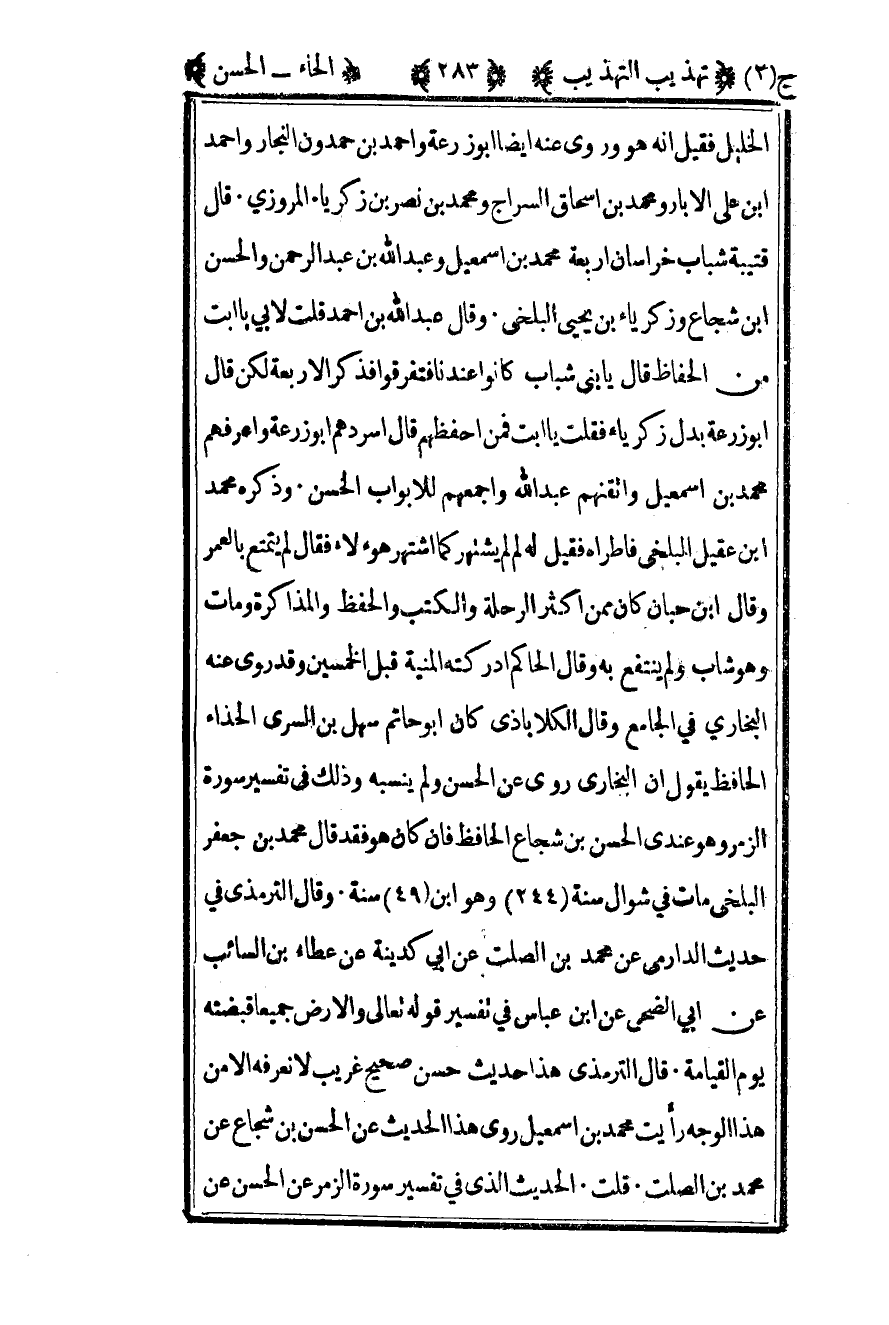 ج(٢) ﴿ تهذيب التهذيب ﴾ ﴿ ٢٨٣ ﴾ ﴿ الحاء ـ الحسن ﴾
الخليل فقيل انه هو وروى عنه ايضا ابو زرعة واحمد بن حمدون النجار واحمد
ابن على الابار ومحمد بن اسحاق السراج ومحمد بن نصر بن زكرياء المروزي ٠ قال
قتيبة شباب خراسان اربعة محمد بن اسمعيل وعبدالله بن عبدالرحمن والحسن
ابن شجاع وزكرياء بن يحيى البلخى ٠ وقال عبدالله بن احمد قلت لابي يا ابت
من الحفاظ قال يابني شباب كانوا عندنا فتفرقوا فذكر الاربعة لكن قال
ابوزرعة بدل زكرياء فقلت يا ابت فمن احفظهم قال اسردهم ابوزرعة واعرفهم
محمد بن اسمعيل واتقنهم عبدالله واجمعهم للابواب الحسن ٠ وذكره محمد
ابن عقيل البلخى فاطراه فقيل له لم لم يشتهر كما اشتهر هوءلاء فقال لم يتمتع بالعمر
وقال ابن حبان كان ممن اكثر الرحلة والكتب والحفظ والمذاكرة ومات
وهوشاب ولم ينتفع به وقال الحاكم ادركته المنية قبل الخمسين وقد روى عنه
البخاري في الجامع وقال الكلاباذى كان ابوحاتم سهل بن السرى الحذاء
الحافظ يقول ان البخارى روى عن الحسن ولم ينسبه وذلك فى تفسير سورة
الزمر وهو عندى الحسن بن شجاع الحافظ فان كان هو فقد قال محمد بن جعفر
البلخى مات في شوال سنة (٢٤٤) وهو ابن (٤٩) سنة ٠ وقال الترمذى في
حديث الدارمى عن محمد بن الصلت عن ابي كدينة عن عطاء بن السائب
عن ابي الضحى عن ابن عباس في تفسير قوله تعالى والارض جميعا قبضته
يوم القيامة ٠ قال الترمذى هذا حديث حسن صحيح غريب لا نعرفه الا من
هذا الوجه رأيت محمد بن اسمعيل روى هذا الحديث عن الحسن بن شجاع عن
محمد بن الصلت ٠ قلت ٠ الحديث الذى في تفسير سورة الزمر عن الحسن عن